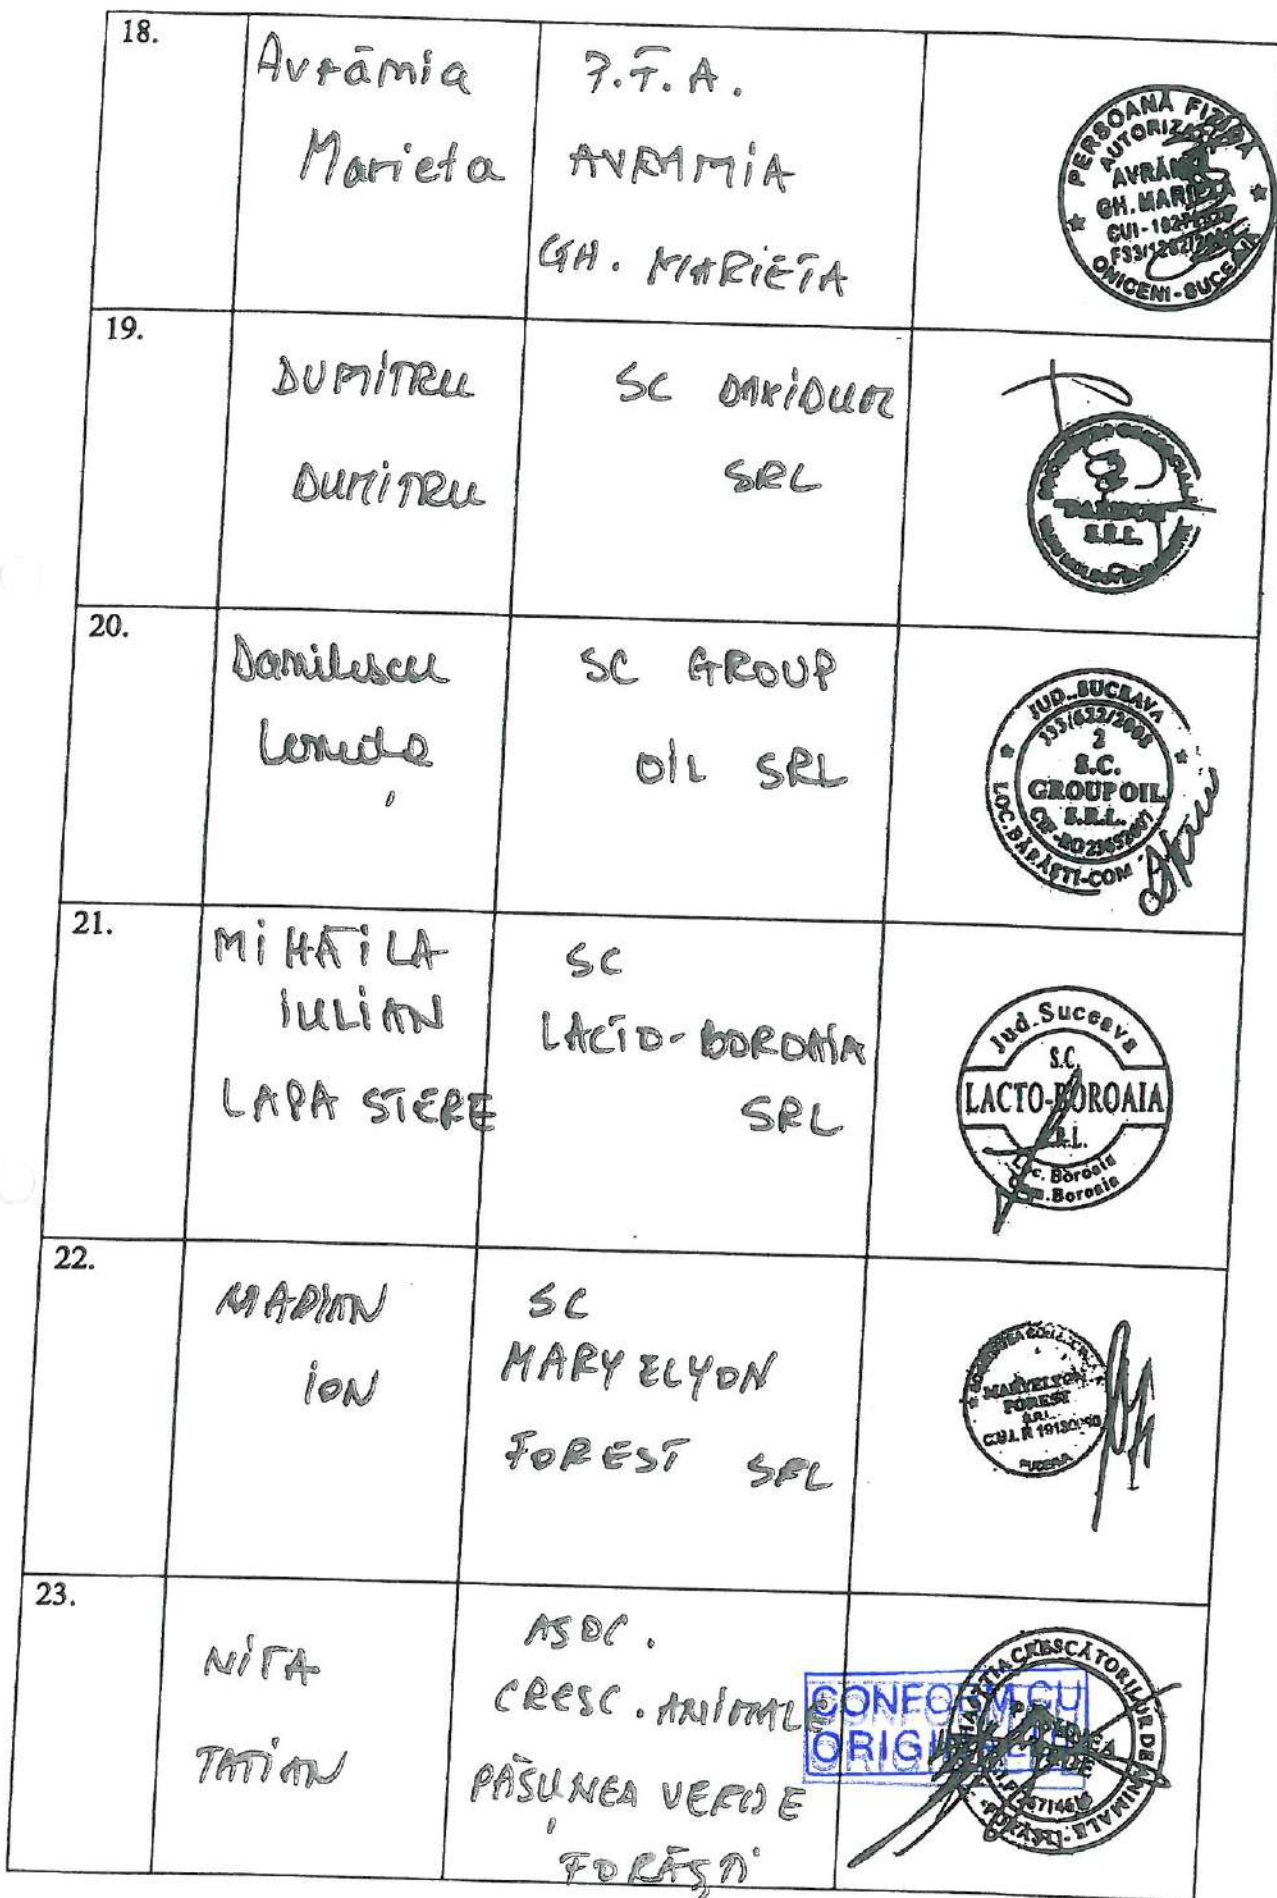 18.
Avrămia
Marieta
P.F.A.
AVRAMIA
GH. MARIETA
PERSOANĂ FIZICĂ
AUTORIZATĂ
GH. MARIETA
ONICENI-SUCEAVA
19.
DUMITRU
DUMITRU
SC DAXIDUR
SRL
DAXIDUR
S.R.L.
20.
Danilescu
SC GROUP
OIL SRL
JUD. SUCEAVA
J33/622/2008
2
S.C.
GROUP OIL
S.R.L.
LOC. BĂRĂȘTI-COM
21.
MIHĂILA
IULIAN
LAPA STERE
SC
LACTO-BOROAIA
SRL
Jud. Suceava
S.C.
LACTO-BOROAIA
S.R.L.
Loc. Boroaia
Com. Boroaia
22.
MADIAN
ION
SC
MARY ELYON
FOREST SRL
MARYELYON
FOREST
S.R.L.
23.
NIȚA
TATIAN
ASOC.
CRESC. ANIMALE
PĂȘUNEA VERDE
FORĂȘTI
CONFORM CU
ORIGINALUL
CRESCĂTORILOR DE ANIMALE